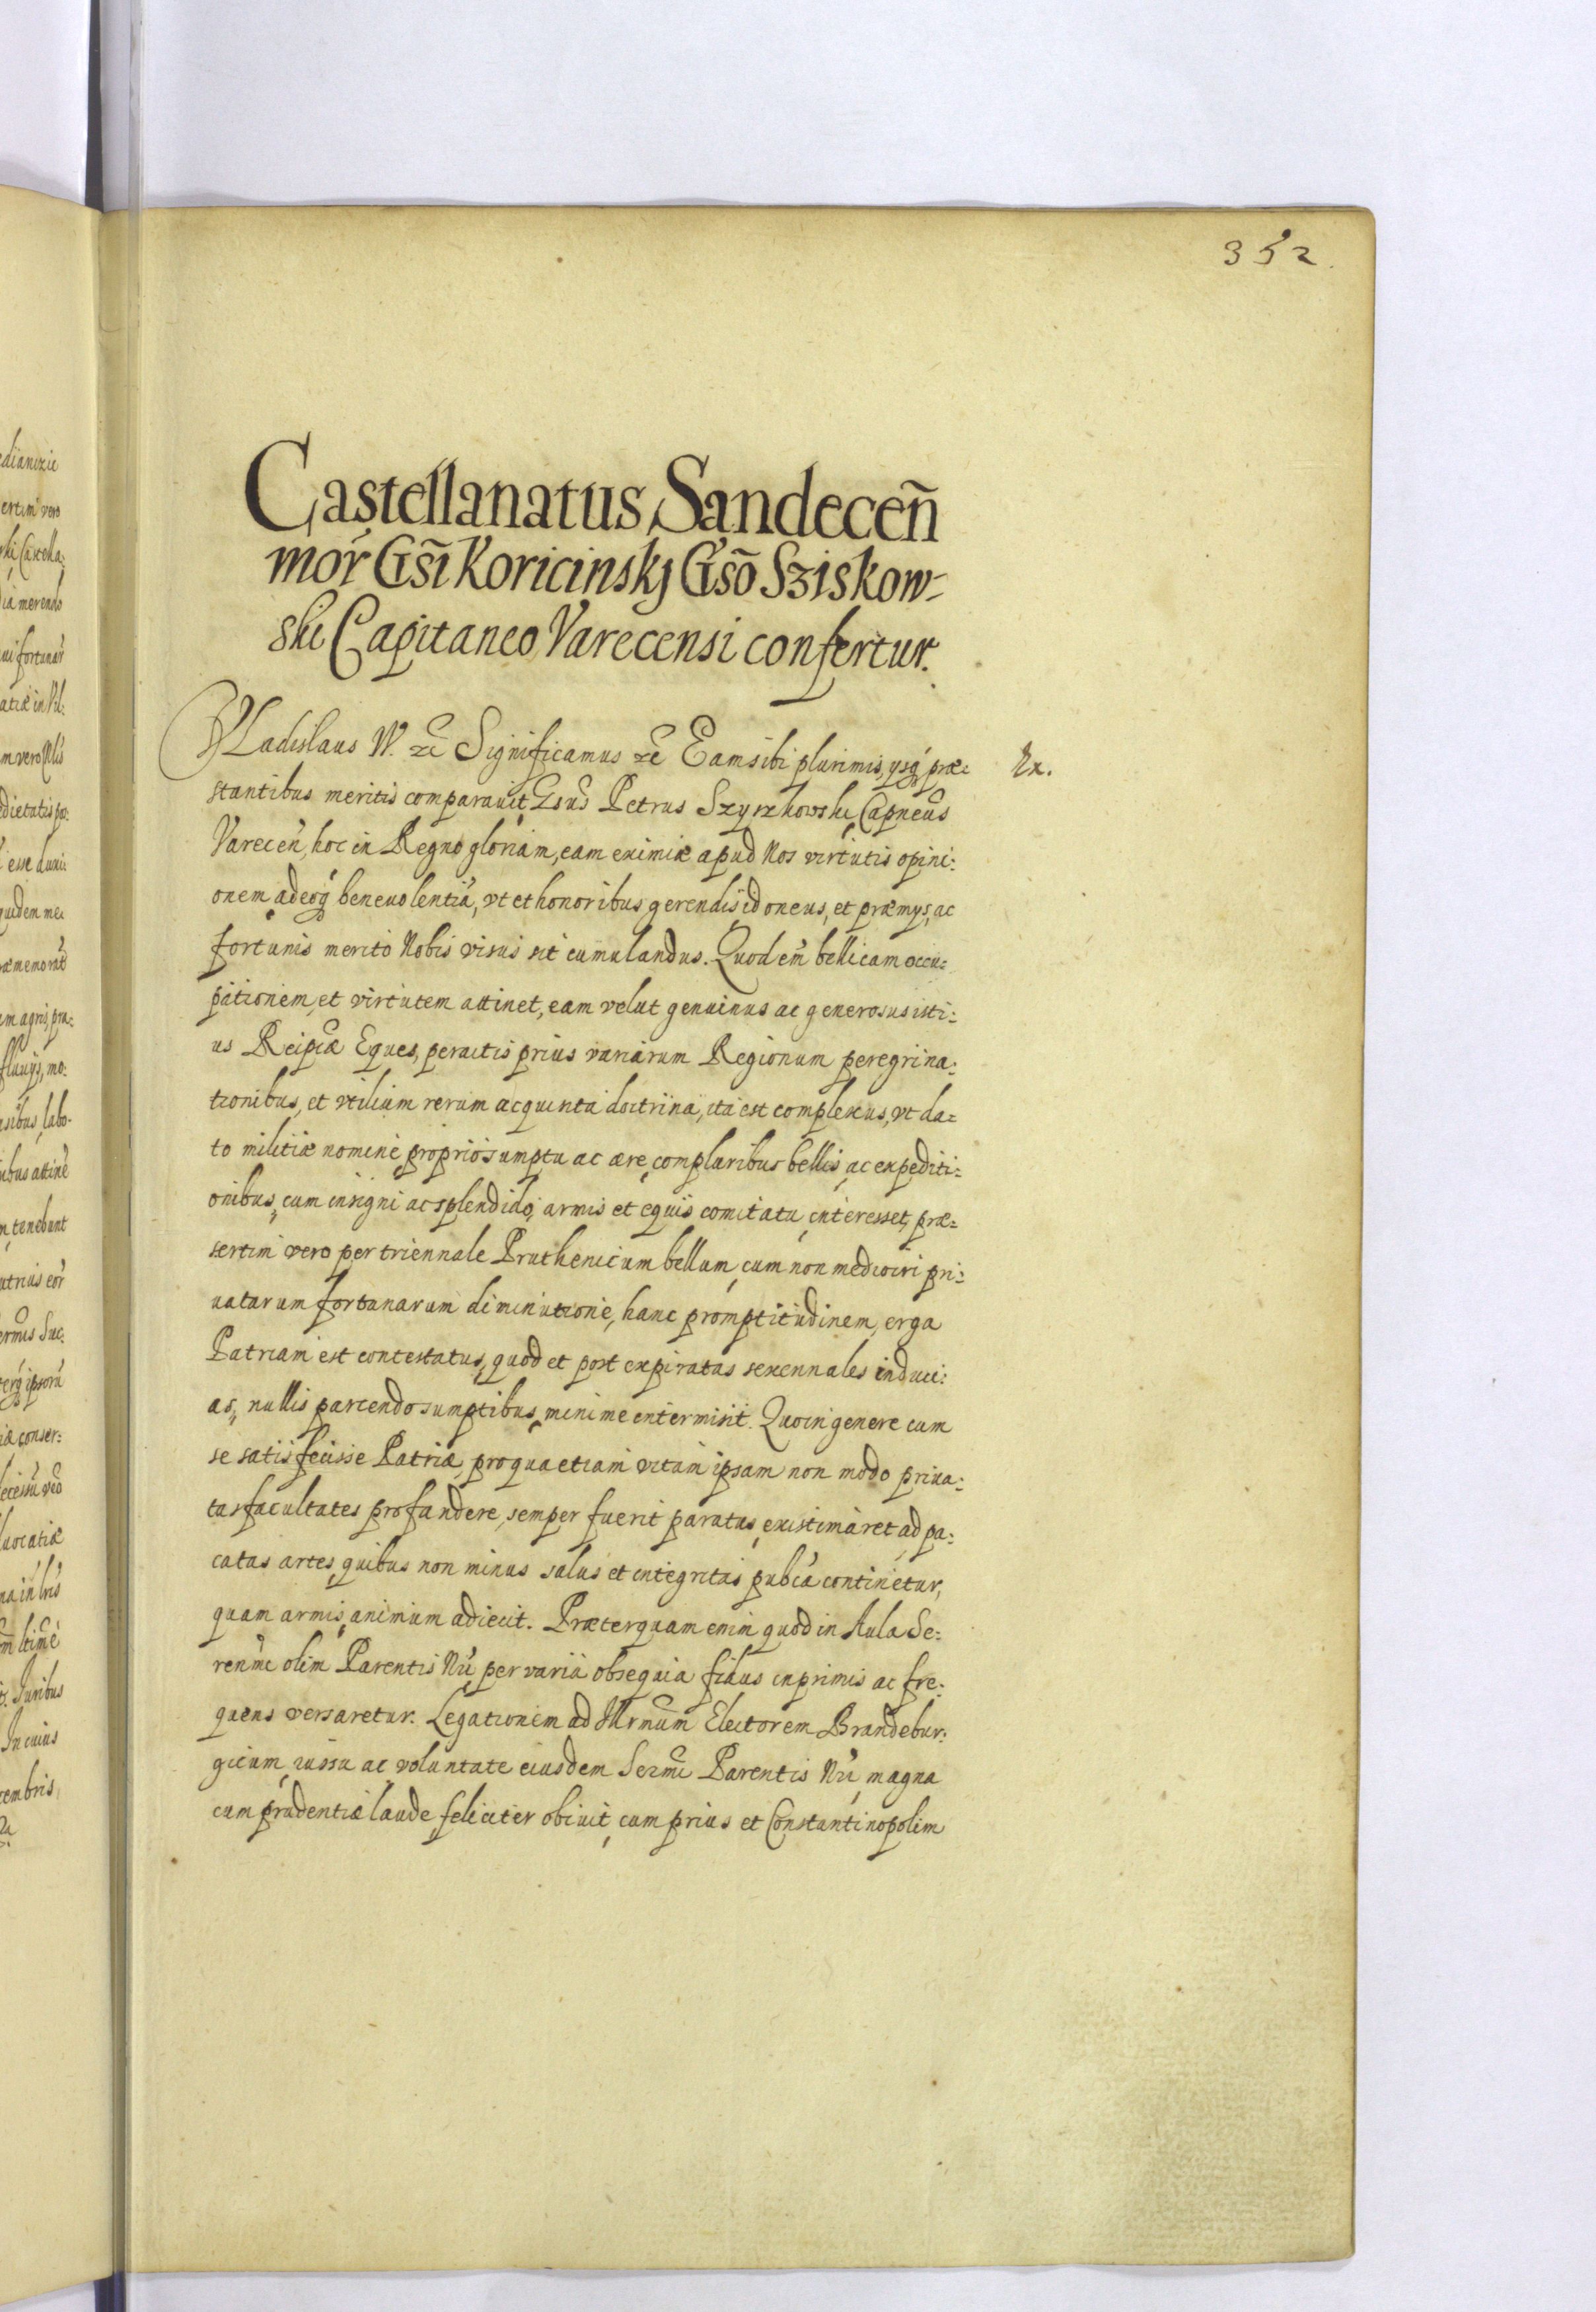 352.
Castellanatus Sandeceñ
mor Gsi Koricinskj Gso Sziskow-
ski Capitaneo Varecensi confertur.
Vladislaus IV. etc Significamus etc Eam sibi plurimis, ysq præ-
stantibus meritis comparauit Gsus Petrus Szyszkowski Capneus
Vareceñ, hoc in Regno gloriam, eam eximiæ apud Nos virtutis opini:
onem adeoq beneuolentiã, vt et honoribus gerendis idoneus, et præmys, ac
fortunis merito Nobis visus sit cumulandus. Quod em bellicam occu:
pationem, et virtutem attinet, eam velut genuinus ac generosus isti:
us Reipcæ Eques, peractis prius variarum Regionum peregrina:
tionibus, et vtilium rerum acquisita doctrina, ita est complexus, vt da:
to militiæ nomine, proprio sumptu ac ære, compluribus bellis, ac expediti:
onibus, cum insigni ac splendido, armis et equis comitatu, interesset, præ:
sertim vero per triennale Pruthenicum bellum, cum non mediocri pri:
uatarum fortunarum diminutione, hanc promptitudinem, erga
Patriam est contestatus, quod et post expiratas sexennales induci:
as, nullis parcendo sumptibus, minime intermisit. Quo in genere cum
se satis fecisse Patriæ, pro qua etiam vitam ipsam non modo priua:
tas facultates profundere, semper fuerit paratus, existimaret ad pa:
catas artes, quibus non minus salus et integritas pubca continetur,
quam armis, animum adiecit. Præterquam enim quod in Aula Se:
renmi olim Parentis Nri, per varia obsequia fidus inprimis ac fre:
quens versaretur. Legationem ad Illrmum Electorem Brandebur:
gicum, iussu ac voluntate eiusdem Sermi Parentis Nri, magna
cum prudentiæ laude, feliciter obiuit, cum prius et Constantinopolim